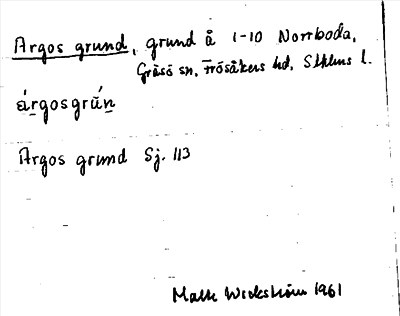 Argos grund, grund å 1-10 Norrboda,
Gräsö sn, Frösåkers hd, Sthlms l.
árgosgrún
Argos grund Sj. 113
Wickström 1961